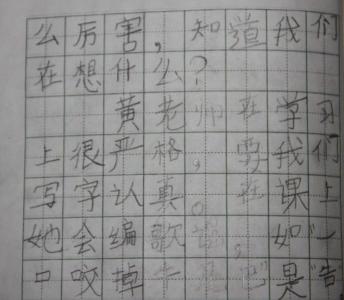 么厉害,知道我们
在想什么?
黄老师在学习
上很严格,要我们
写字认真。在课上
她会编歌诀,如“一
口咬掉牛尾巴”是“告